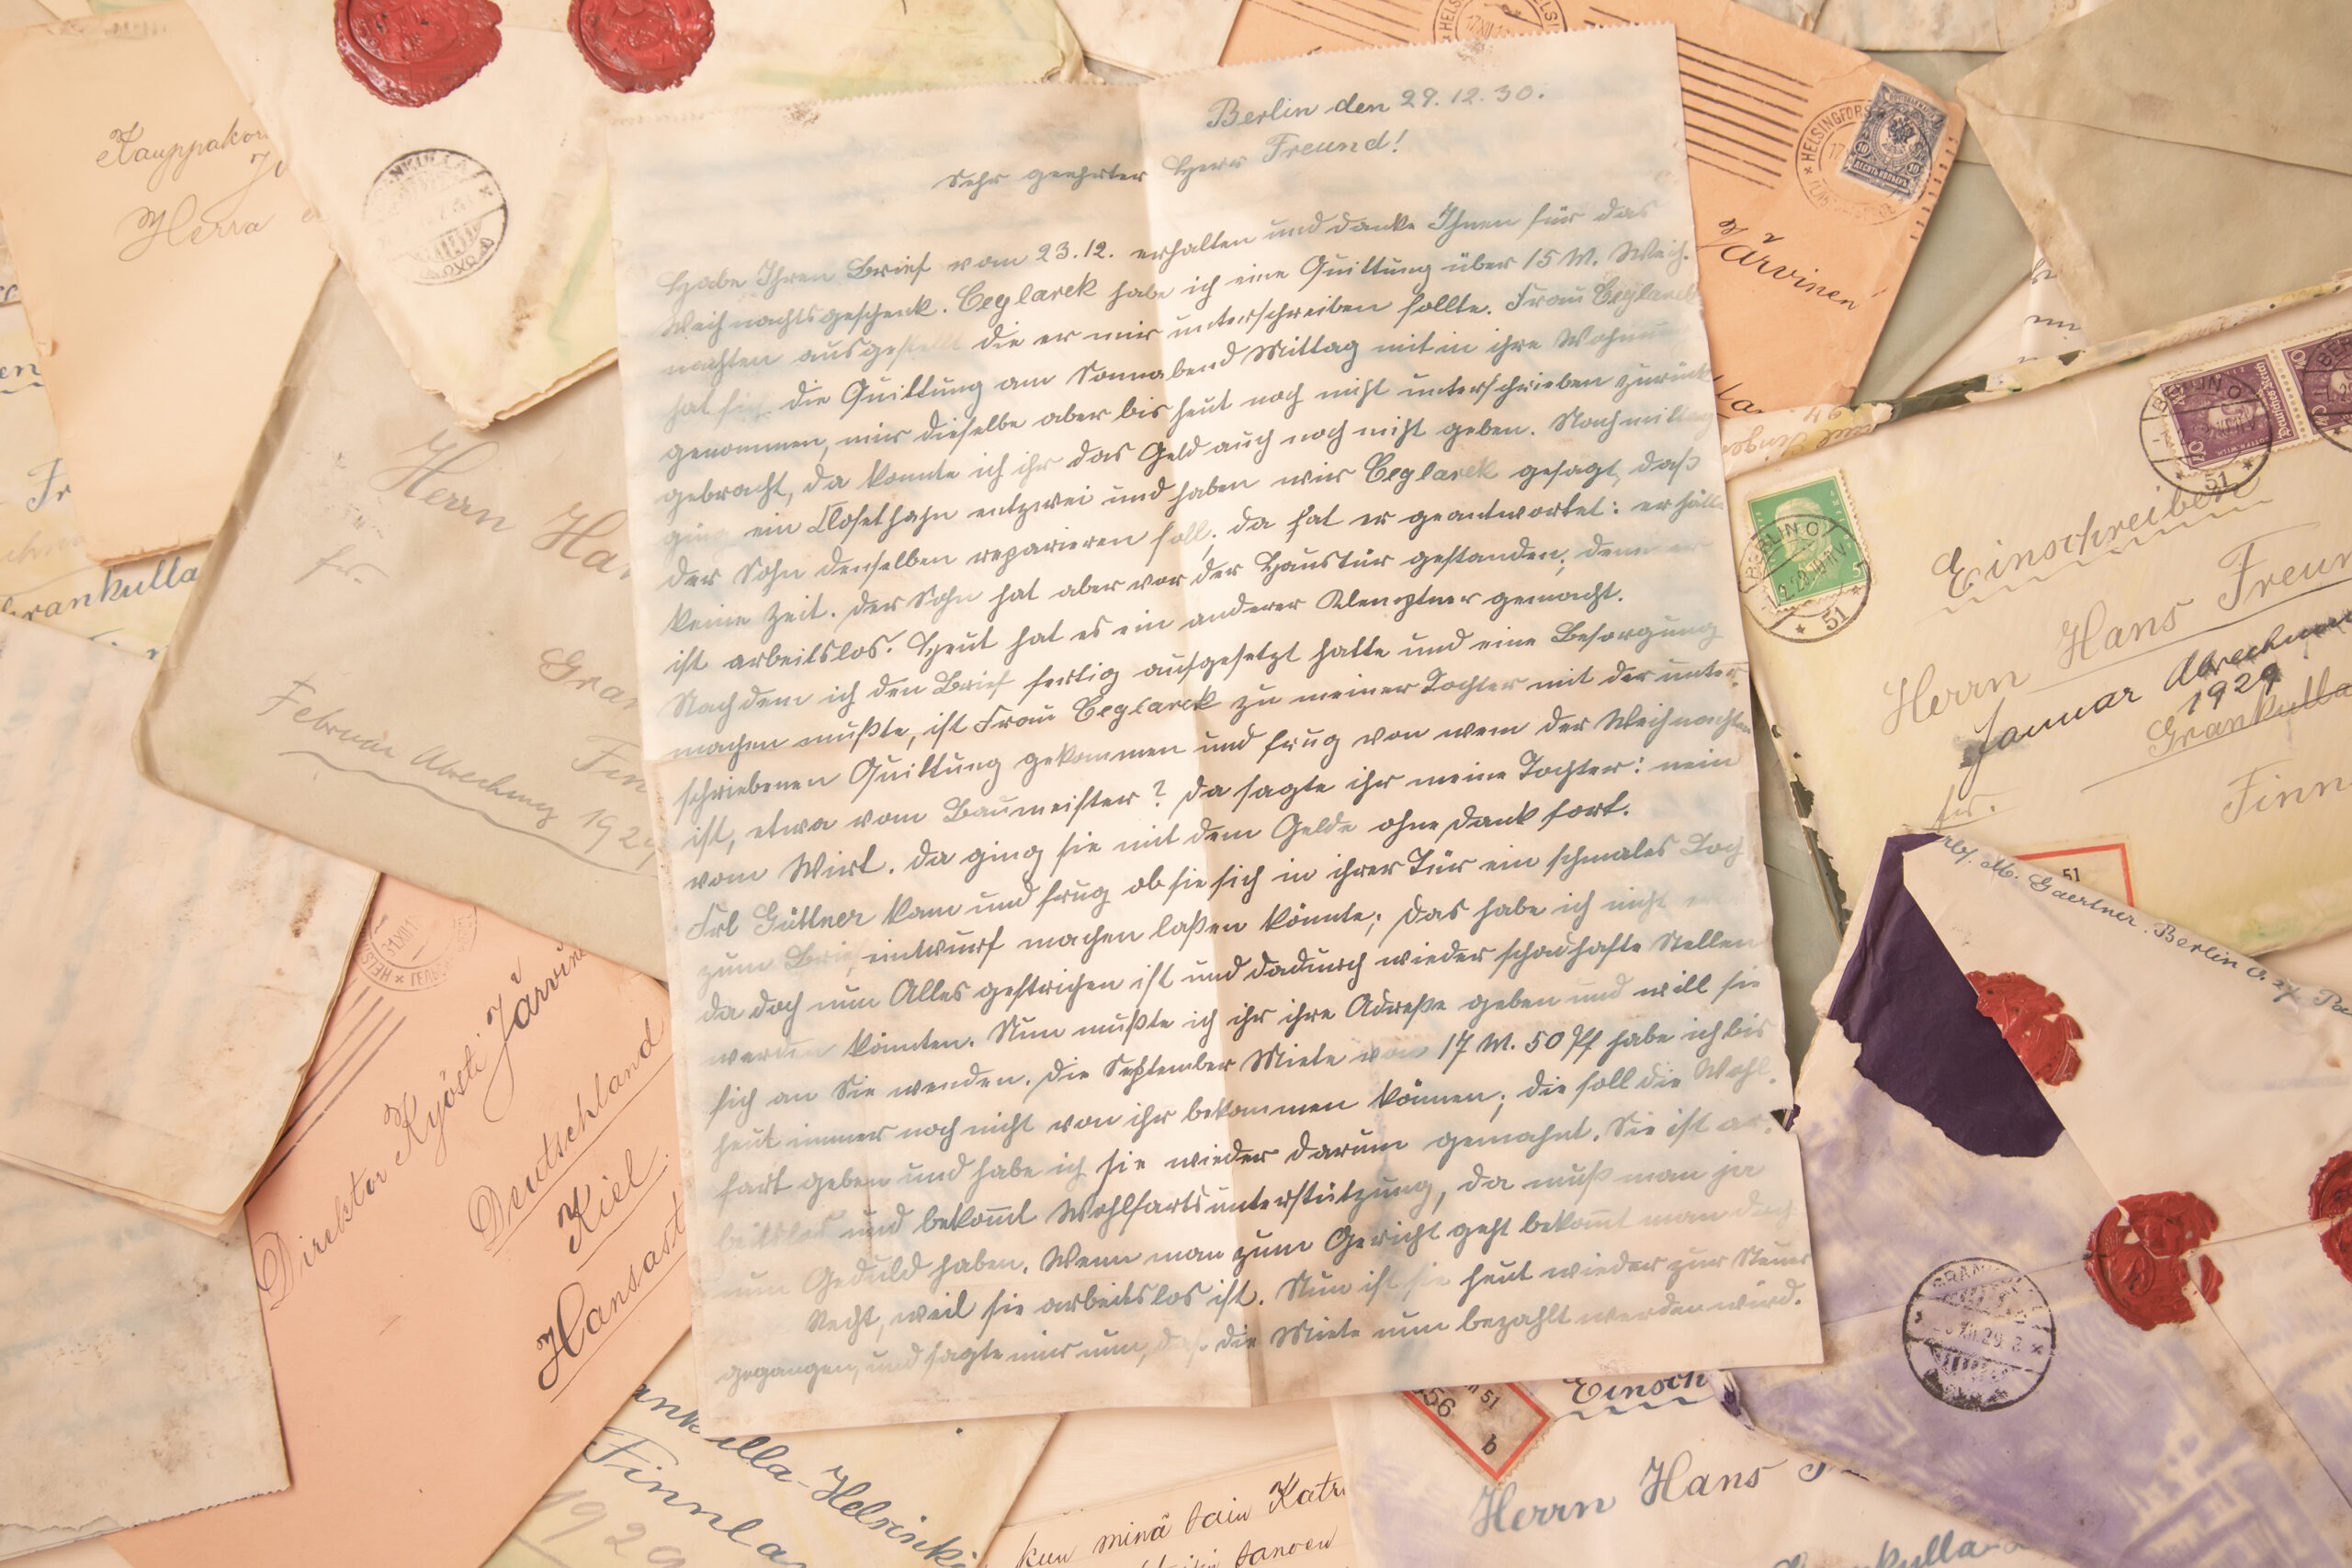 Berlin den 29.12.30.
Sehr geehrter Herr Freund!
Habe Ihren Brief vom 23.12. erhalten und danke Ihnen für das
Weihnachtsgeschenk. Ceglarek habe ich eine Quittung über 15 M. Weih-
nachten ausgestellt die er mir unterschreiben sollte. Frau Ceglarek
hat sich die Quittung am Sonnabend Mittag mit in ihre Wohnung
genommen, mir dieselbe aber bis heut noch nicht unterschrieben zurück
gebracht, da konnte ich ihr das Geld auch noch nicht geben. Nachmittag
ging ein Closethahn entzwei und haben wir Ceglarek gesagt, daß
der Sohn denselben reparieren soll; da hat er geantwortet: er hätte
keine Zeit. Der Sohn hat aber vor der Haustür gestanden; denn er
ist arbeitslos. Heut hat es ein anderer Klemptner gemacht.
Nachdem ich den Brief fertig aufgesetzt hatte und eine Besorgung
machen mußte, ist Frau Ceglarek zu meiner Tochter mit der unter-
schriebenen Quittung gekommen und frug von wem der Weihnachten
ist, etwa vom Baumeister? Da sagte ihr meine Tochter: nein
vom Wirt. Da ging sie mit dem Gelde ohne Dank fort.
Frl Güttner kam und frug ob sie sich in ihrer Tür ein schmales Loch
zum Briefeintwurf machen laßen könnte; das habe ich nicht
da doch nun Alles gestrichen ist und dadurch wieder schadhafte Stellen
werden könnten. Nun mußte ich ihr ihre Adreße geben und will sie
sich an Sie wenden. Die September Miete von 17 M. 50 Pf habe ich bis
heut immer noch nicht von ihr bekommen können; die soll die Wohl-
fart geben und habe ich sie wieder darum gemahnt. Sie ist ar-
beitslos und bekomt Wohlfartsunterstützung, da muß man ja
nun Geduld haben. Wenn man zum Gericht geht bekomt man doch
Recht, weil sie arbeitslos ist. Nun ist sie heut wieder zur Steuer
gegangen, und sagte mir nun, daß die Miete nun bezahlt werden wird.
Herra
Herrn Ha
fr.
Gra
Februar Abrechnung 1929
Fin
Grankulla
Järvinen
HELSINGFORS
Einschreiben
Herrn Hans Freun
Januar Abrechnun
1929
Grankulla
Finn
fr.
BERLIN O
51
51
51
M. Gaertner. Berlin O. 27
Direktor Kyösti Järvine
Deutschland
Kiel.
Hansast
ankulla-Helsinki
Finnla
1929
kun minä sain Katri
56
51
b
Einsch
Herrn Hans
ankulla